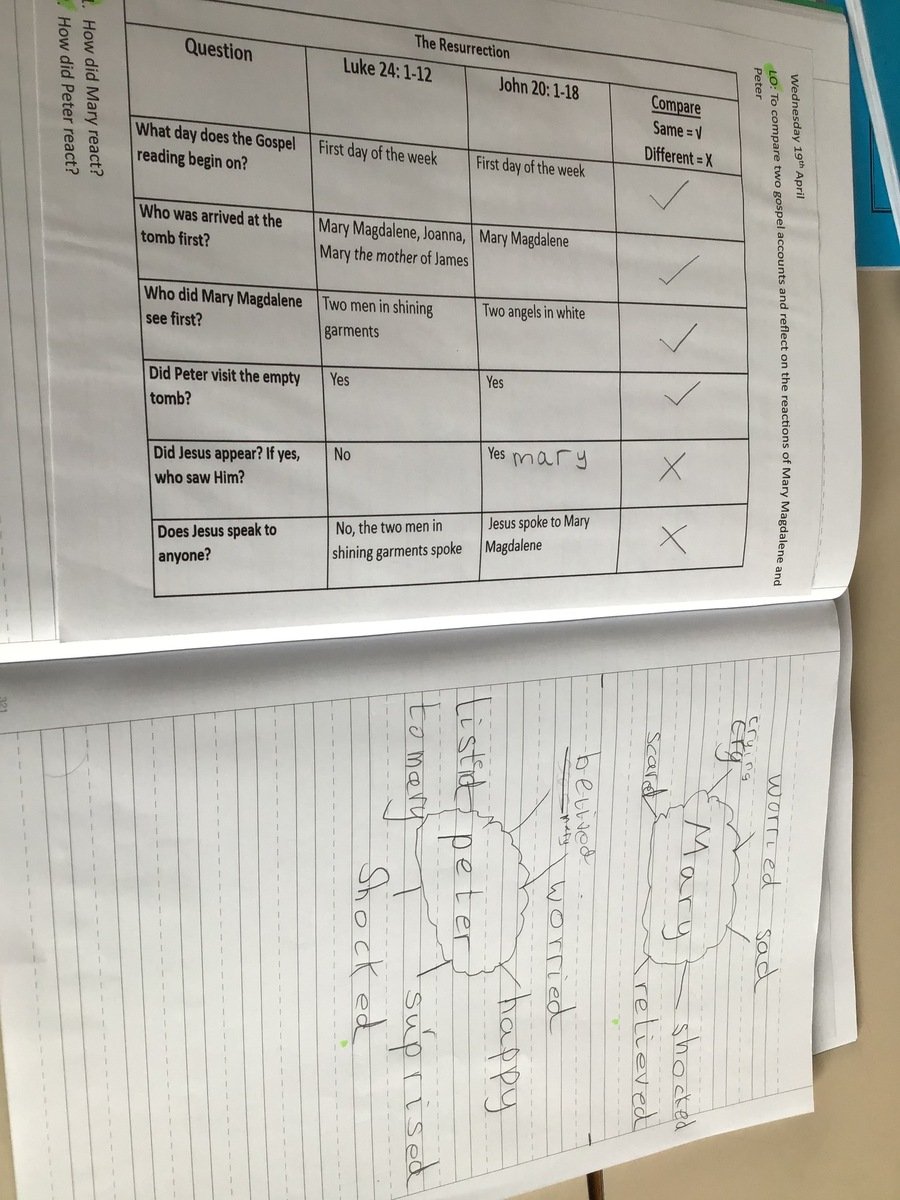 Wednesday 19th April
LO: To compare two gospel accounts and reflect on the reactions of Mary Magdalene and
Peter
The Resurrection
Question
Luke 24: 1-12
John 20: 1-18
Compare
Same = √
Different = X
What day does the Gospel
reading begin on?
First day of the week
First day of the week
✓
Who was arrived at the
tomb first?
Mary Magdalene, Joanna,
Mary the mother of James
Mary Magdalene
✓
Who did Mary Magdalene
see first?
Two men in shining
garments
Two angels in white
✓
Did Peter visit the empty
tomb?
Yes
Yes
✓
Did Jesus appear? If yes,
who saw Him?
No
Yes mary
X
Does Jesus speak to
anyone?
No, the two men in
shining garments spoke
Jesus spoke to Mary
Magdalene
X
1. How did Mary react?
How did Peter react?
worried sad
crying
scared
Mary
shocked
relieved
belived
mary
worried
happy
peter
to mary
suprised
Shocked
321